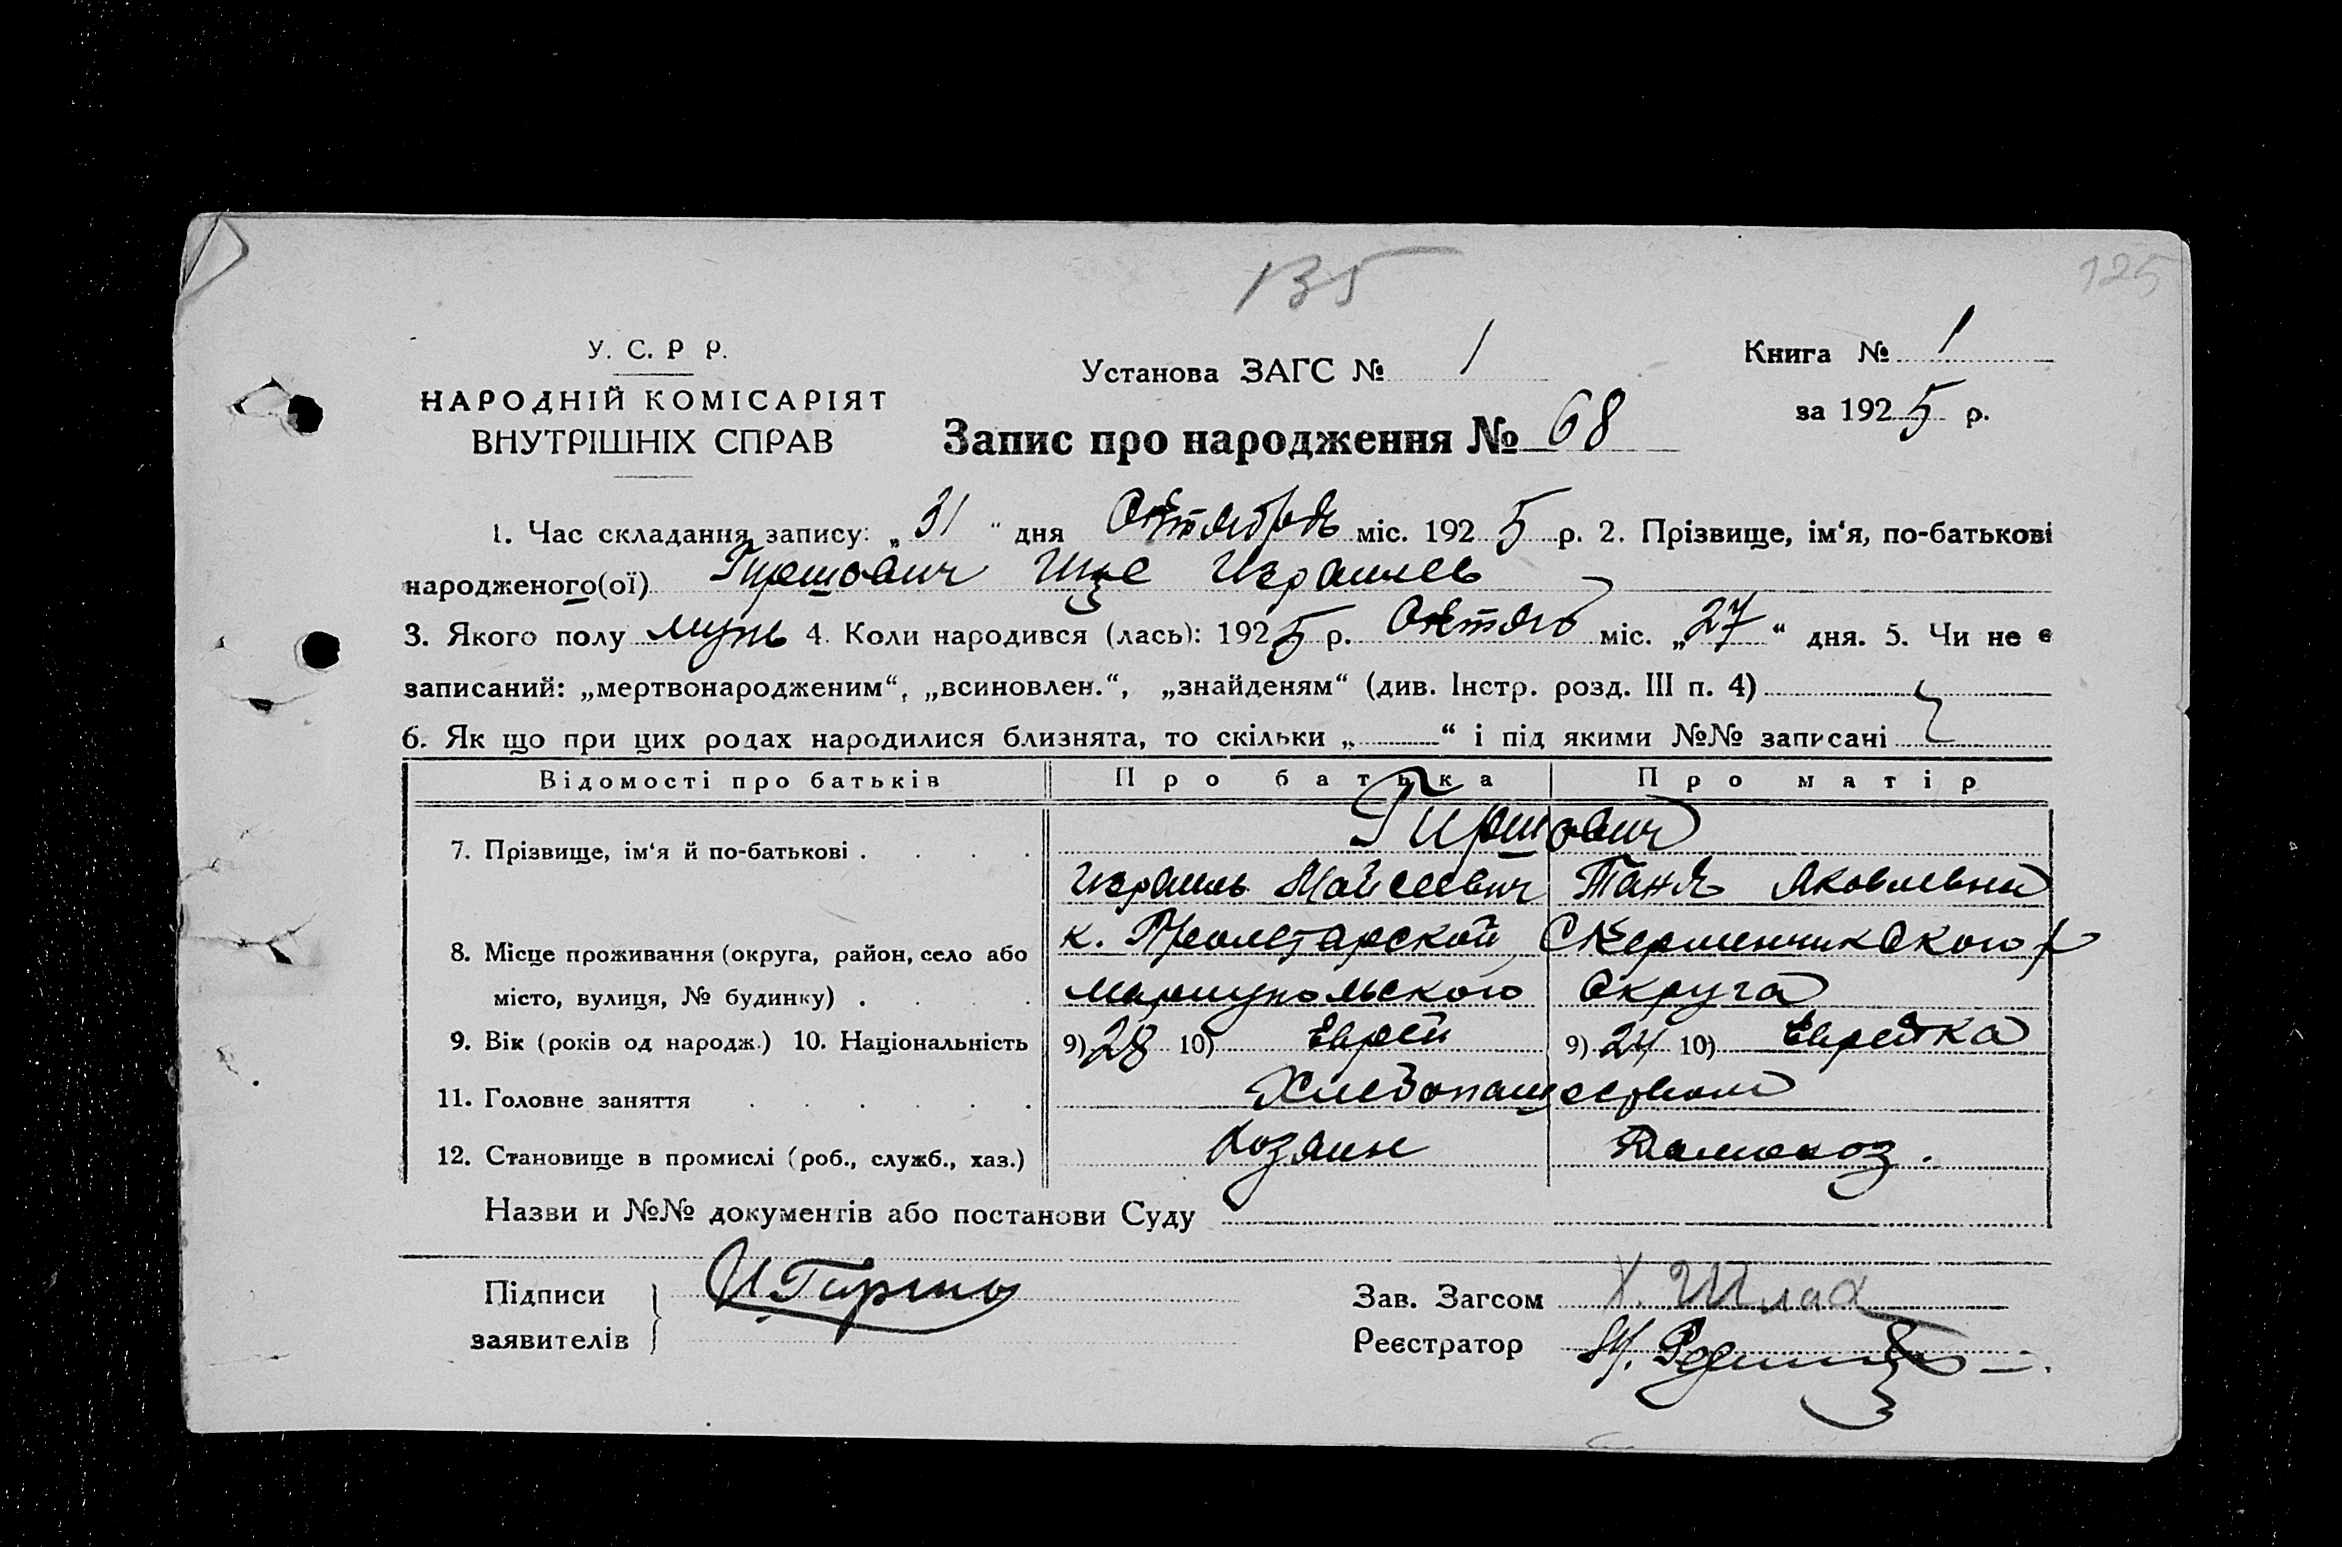 135
125
У. С. Р Р.
НАРОДНІЙ КОМІСАРІЯТ
ВНУТРІШНІХ СПРАВ
Установа ЗАГС № 1
Книга № 1
за 1925 р.
Запис про народження № 68
1. Час складання запису: „31“ дня Октябрь міс. 1925 р. 2. Прізвище, ім‘я, по-батькові
народженого(ої) Гиршович Израилев
3. Якого полу мужь 4. Коли народився (лась): 1925 р. Октяб міс. „27“ дня. 5. Чи не є
записаний: „мертвонародженим“, „всиновлен.“, „знайденям“ (див. Інстр. розд. III п. 4)
6. Як що при цих родах народилися близнята, то скільки „ “ і під якими №№ записані
Відомості про батьків Про батька Про матір
7. Прізвище, ім‘я й по-батькові . . . . Гиршович
Израиль Мойсеевич Таня Яковлевна
8. Місце проживання (округа, район, село або к. Пролетарской, Скерменчикского р
місто, вулиця, № будинку) . . . . Мариупольского Округа
9. Вік (років од народж.) 10. Національність 9) 28 10) Еврей 9) 24 10) Еврейка
11. Головне заняття . . . . . . Хлебопашеством
12. Становище в промислі (роб., служб., хаз.) Хозяин Домохоз.
Назви и №№ документів або постанови Суду
Підписи
заявителів
И Гиршо
Зав. Загсом Х. Шлах
Реєстратор